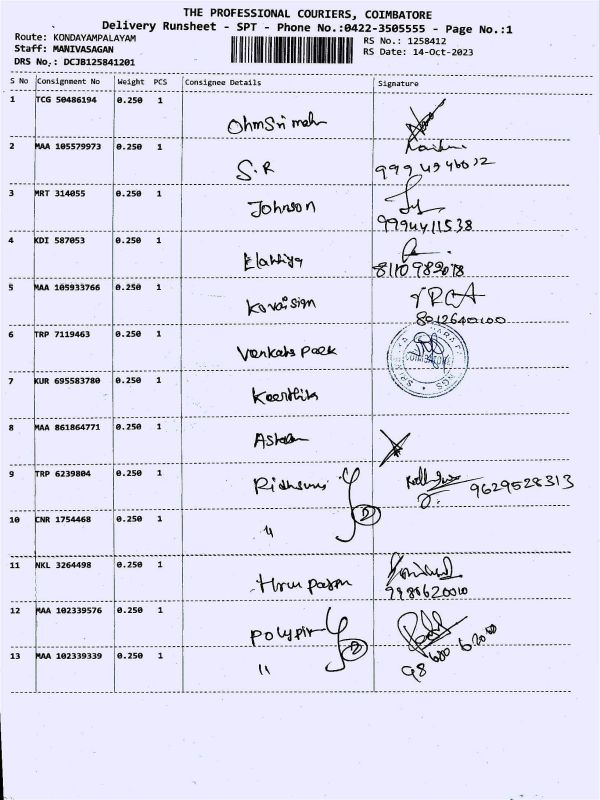 THE PROFESSIONAL COURIERS, COIMBATORE
Delivery Runsheet - SPT - Phone No.:0422-3505555 - Page No.:1
Route: KONDAYAMPALAYAM
Staff: MANIVASAGAN
DRS No.: DCJB125841201
RS No.: 1258412
RS Date: 14-Oct-2023
S No Consignment No Weight PCS Consignee Details Signature
1 TCG 50486194 0.250 1
2 MAA 105579973 0.250 1 S.R
3 MRT 314055 0.250 1 Johnson 9994411538
4 KDI 587053 0.250 1
5 MAA 105933766 0.250 1 Kovaisign 8012640100
6 TRP 7119463 0.250 1 Venkats Park
7 KUR 695583780 0.250 1 Keerthika
8 MAA 861864771 0.250 1
9 TRP 6239804 0.250 1 9629528313
10 CNR 1754468 0.250 1 "
11 NKL 3264498 0.250 1
12 MAA 102339576 0.250 1
13 MAA 102339339 0.250 1 "